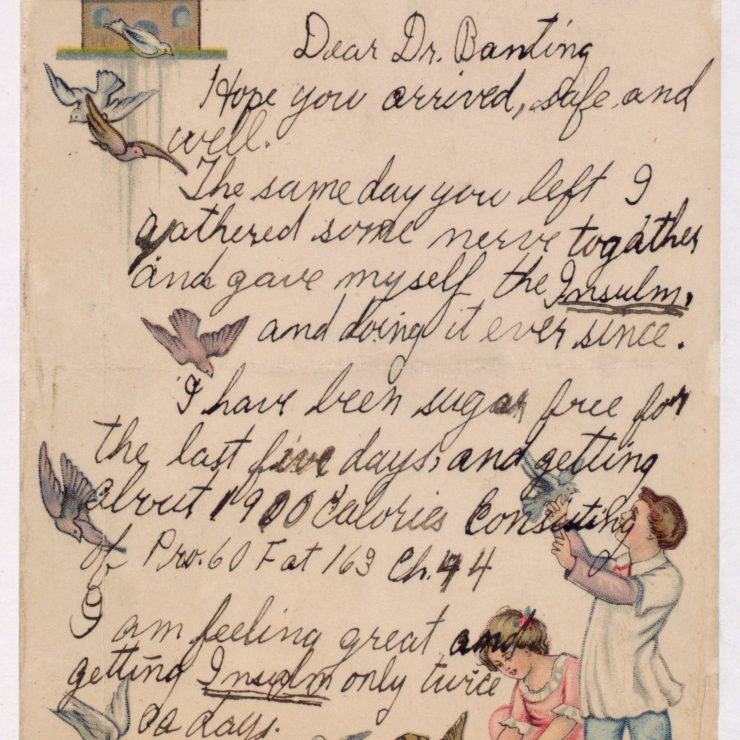 Dear Dr. Banting
Hope you arrived, safe and
well.
The same day you left I
gathered some nerve togather
and gave myself the Insulin,
and doing it ever since.
I have been sugar free for
the last five days, and getting
about 1900 Calories Consisting
of Pro. 60 Fat 163 Ch. 44
I am feeling great and
getting Insulin only twice
a days.